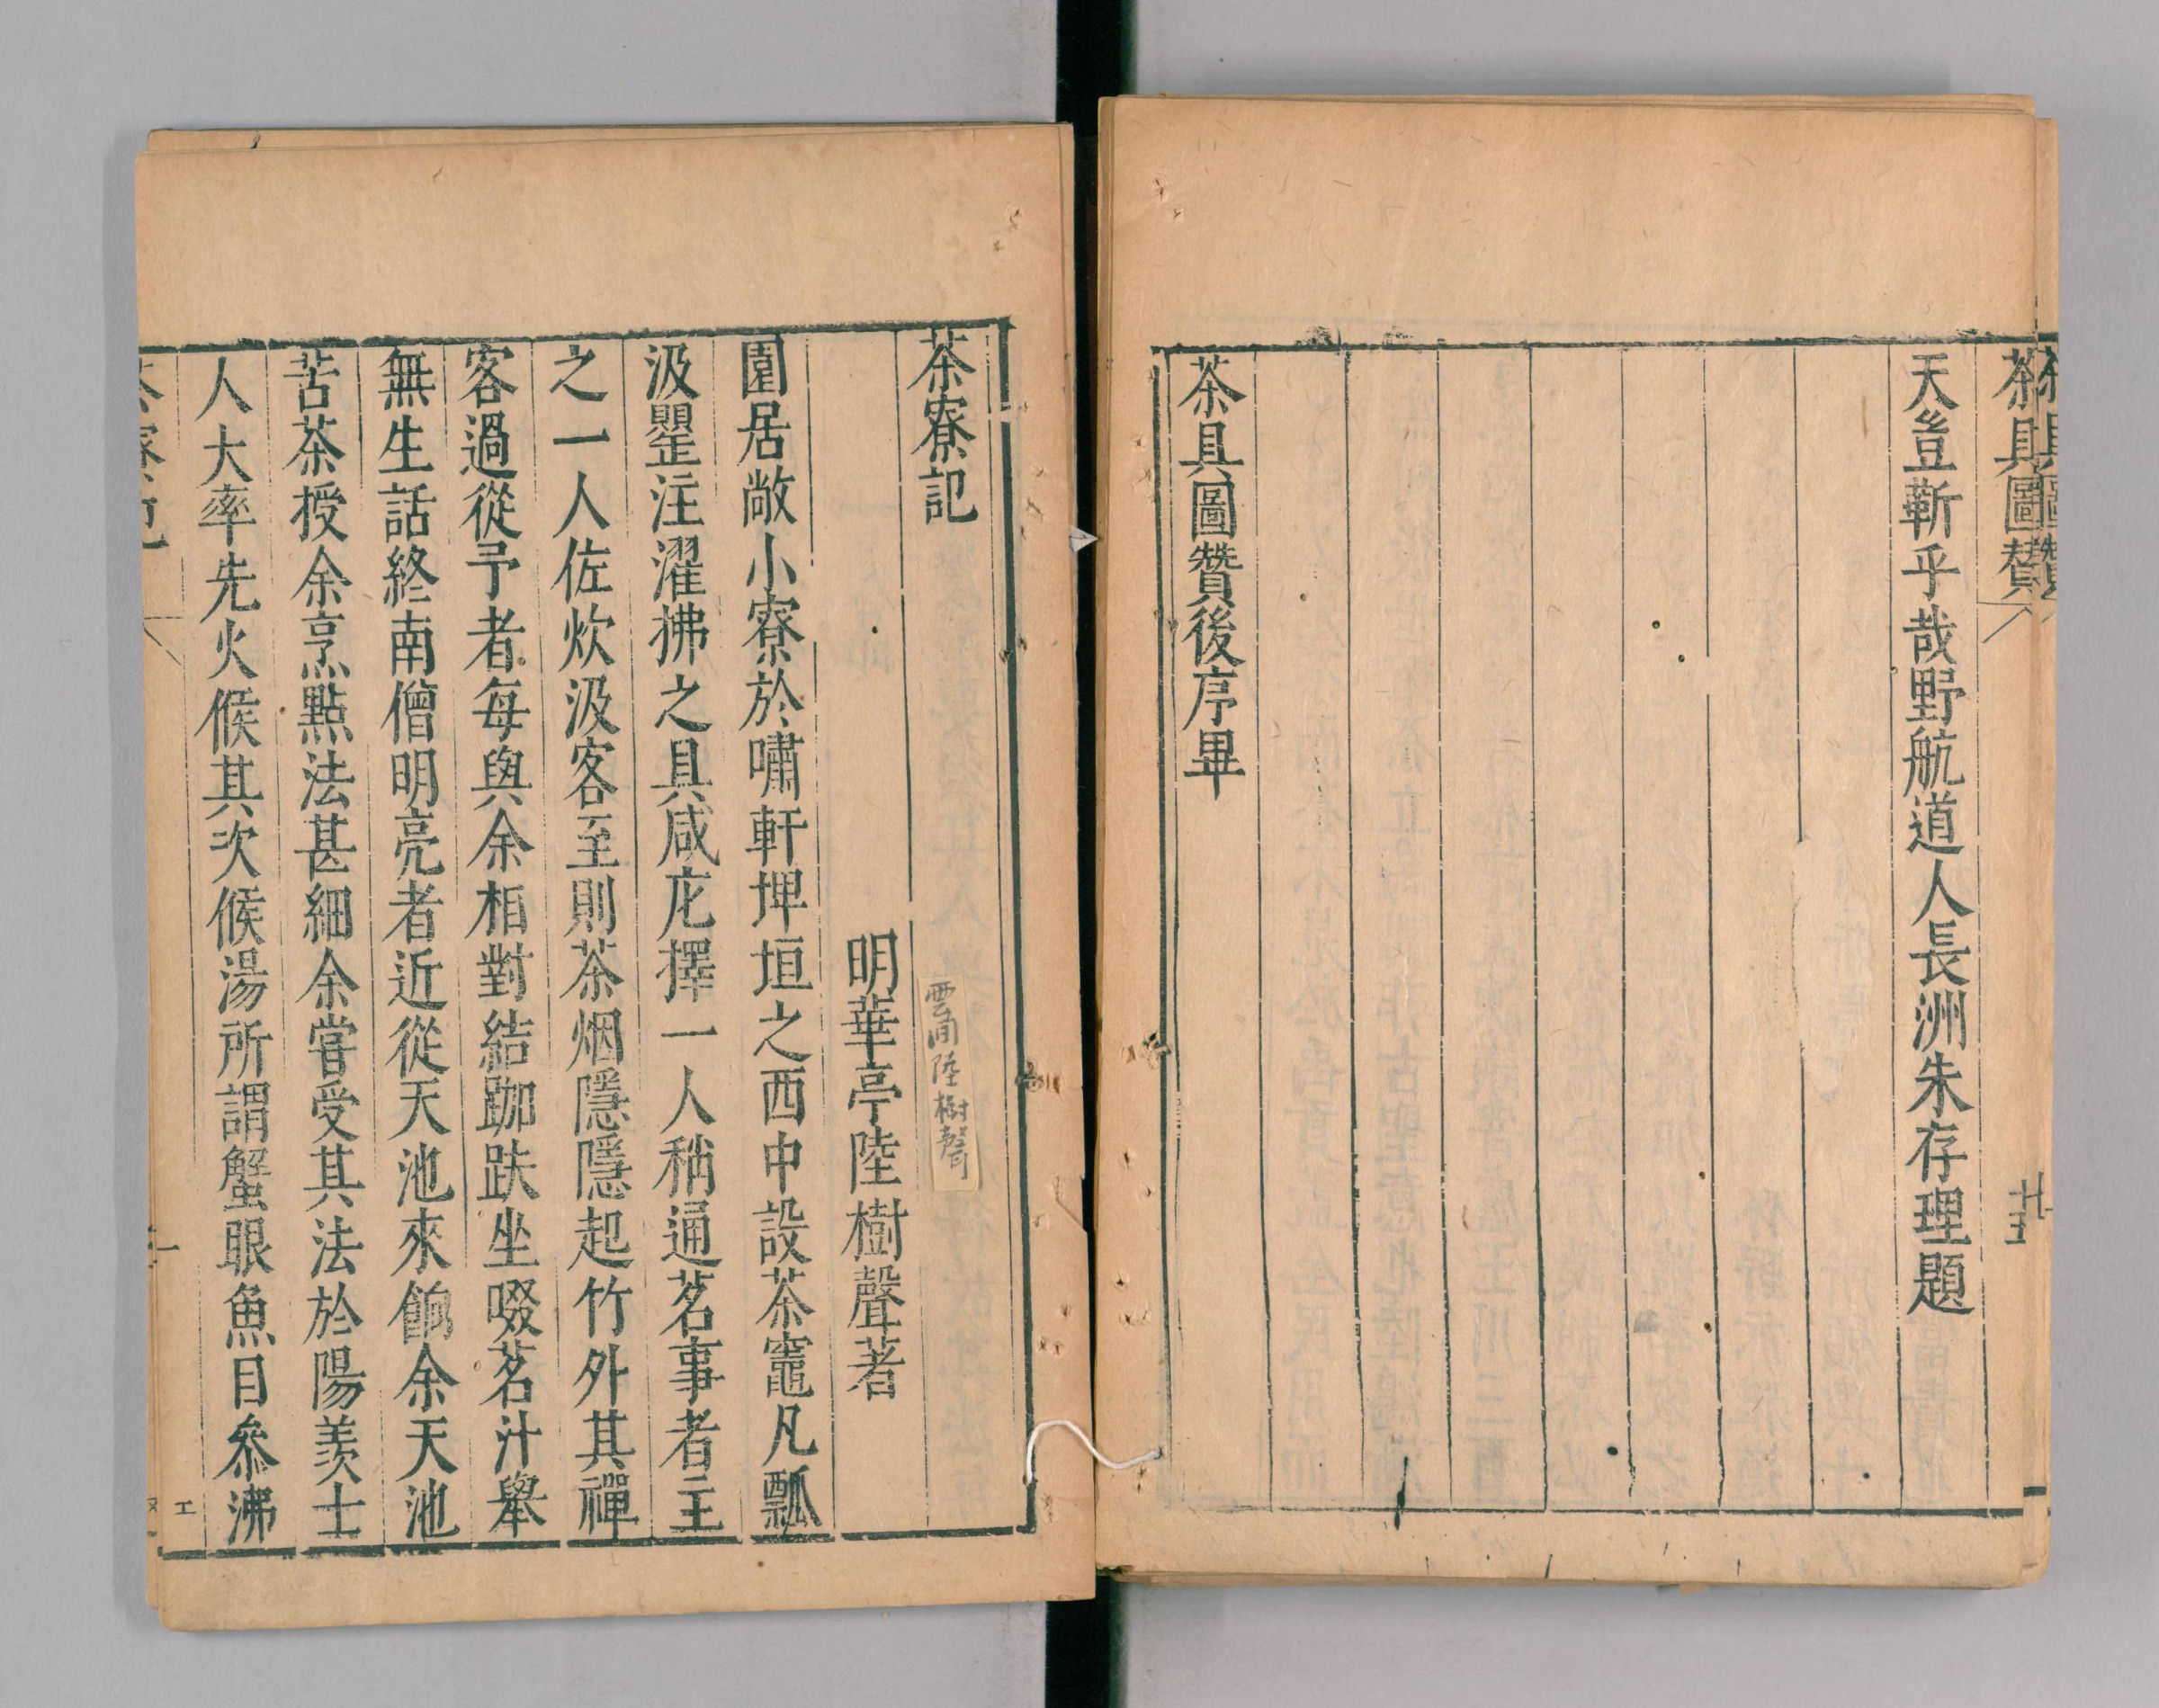 茶具圖賛
廿五
天豈靳乎哉野航道人長洲朱存理題
茶具圖贊後序畢
茶寮記
雲間陸樹聲
明華亭陸樹聲著
園居敞小寮於嘯軒埤垣之西中設茶竈凡瓢
汲罌注濯拂之具咸庀擇一人稍通茗事者主
之一人佐炊汲客至則茶烟隱隱起竹外其禪
客過從予者每與余相對結跏趺坐啜茗汁舉
無生話終南僧明亮者近從天池來餉余天池
苦茶授余烹點法甚細余嘗受其法於陽羨士
人大率先火候其次候湯所謂蟹眼魚目叅沸